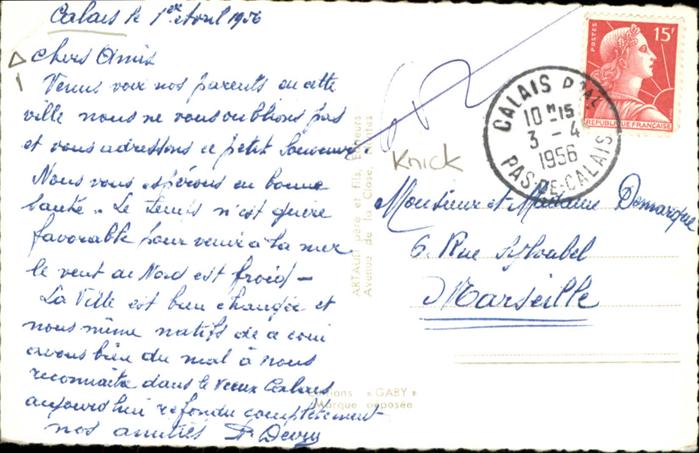 Calais le 1er Avril 1956
Chers Amis
Venus voir nos parents en cette
ville nous ne vous oublions pas
et vous adressons ce petit Souvenir
Nous vous espérons en bonne
santé. Le temps n'est guère
favorable pour venir à la mer
le vent du Nord est froid -
La Ville est bien changée et
nous même natifs de ce coin
avons bien du mal à nous
reconnaitre dans le vieux Calais
aujourd'hui refondu complètement
nos amitiés
ARTAUD père et fils, Editeurs
Avenue de la Close, Nantes
Editions « GABY »
Marque déposée
Knick
POSTES
15F
REPUBLIQUE FRANÇAISE
CALAIS
10 H 15
3 - 4
1956
PAS-DE-CALAIS
Monsieur et Madame Demarque
6. Rue
Marseille